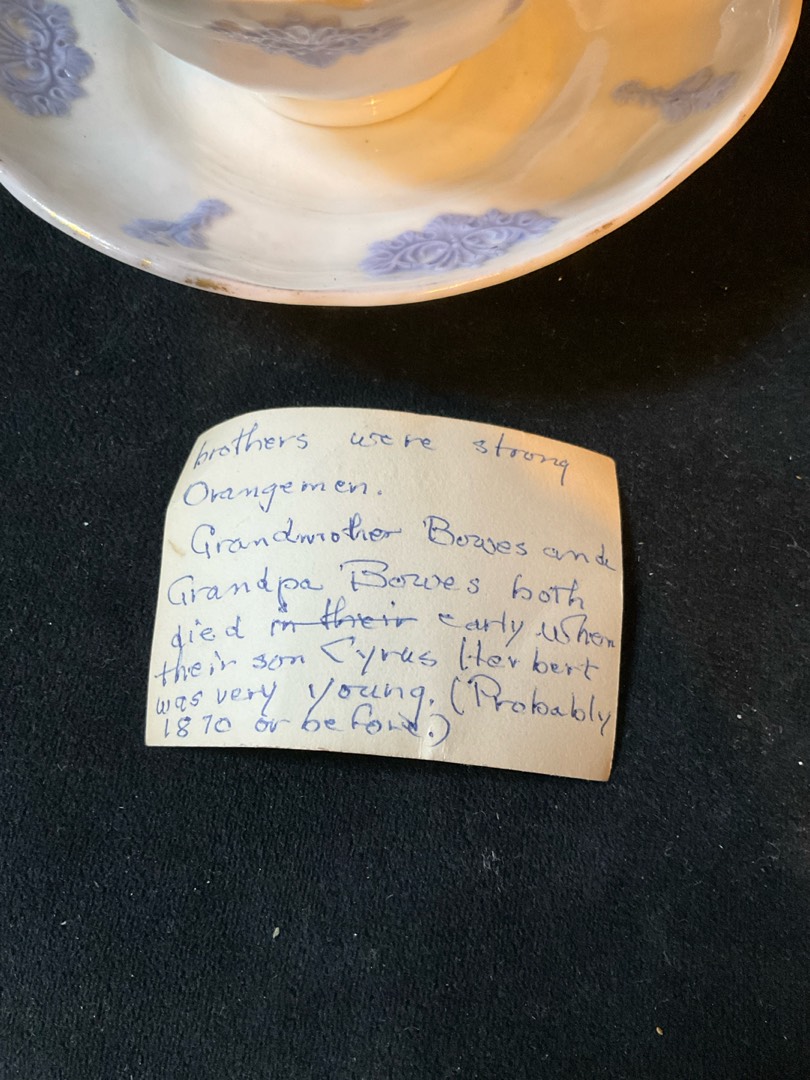 brothers were strong
Orangemen.
Grandmother Bowes and
Grandpa Bowes both
died in their early when
their son Cyrus Herbert
was very young. (Probably
1870 or before.)